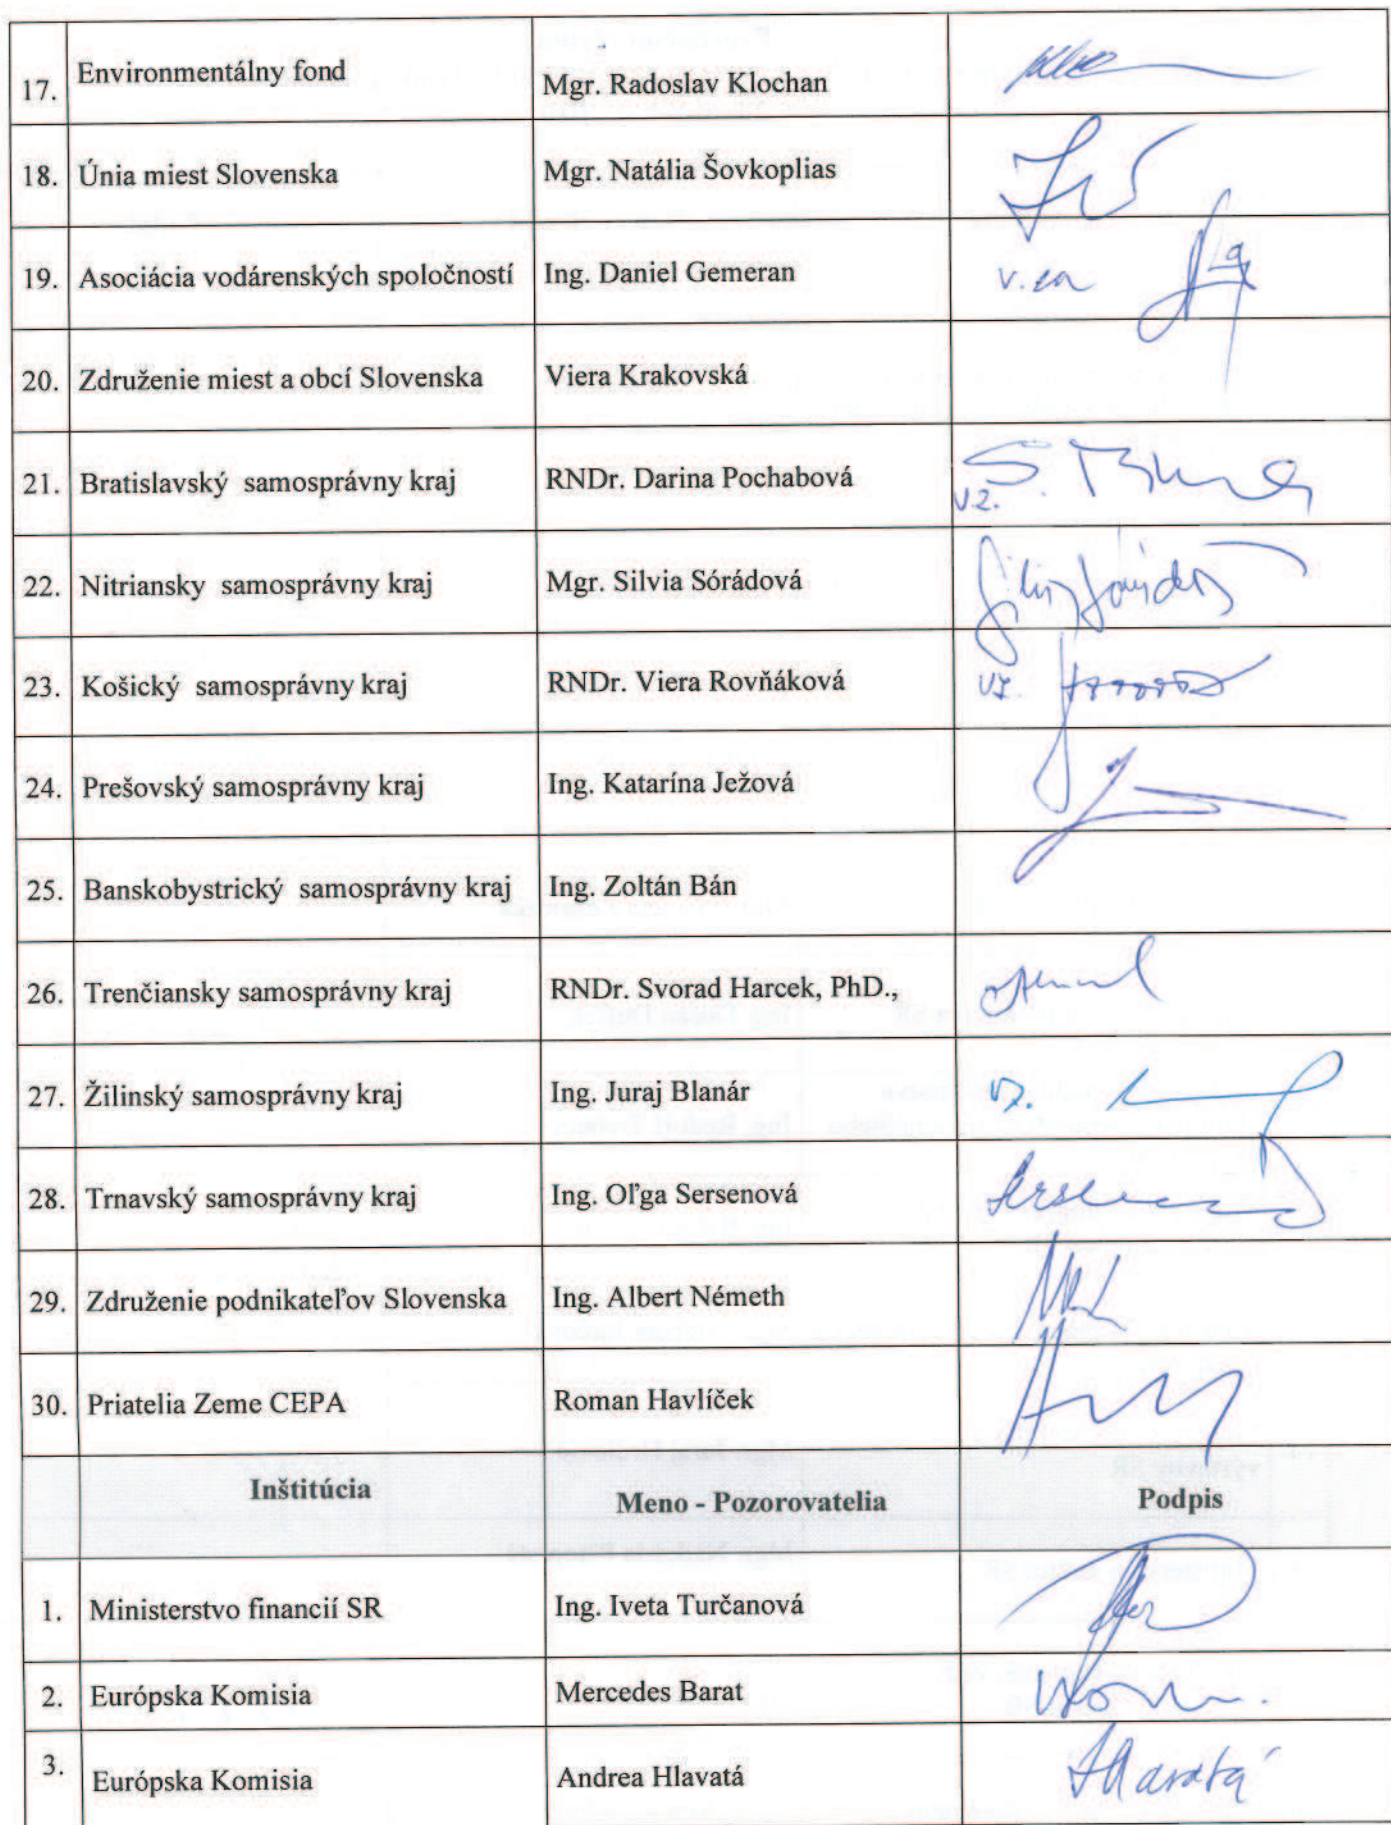 17. Environmentálny fond Mgr. Radoslav Klochan
18. Únia miest Slovenska Mgr. Natália Šovkoplias
19. Asociácia vodárenských spoločností Ing. Daniel Gemeran
20. Združenie miest a obcí Slovenska Viera Krakovská
21. Bratislavský samosprávny kraj RNDr. Darina Pochabová v.z.
22. Nitriansky samosprávny kraj Mgr. Silvia Sórádová
23. Košický samosprávny kraj RNDr. Viera Rovňáková vz.
24. Prešovský samosprávny kraj Ing. Katarína Ježová
25. Banskobystrický samosprávny kraj Ing. Zoltán Bán
26. Trenčiansky samosprávny kraj RNDr. Svorad Harcek, PhD.,
27. Žilinský samosprávny kraj Ing. Juraj Blanár vz.
28. Trnavský samosprávny kraj Ing. Oľga Sersenová
29. Združenie podnikateľov Slovenska Ing. Albert Németh
30. Priatelia Zeme CEPA Roman Havlíček
Inštitúcia Meno - Pozorovatelia Podpis
1. Ministerstvo financií SR Ing. Iveta Turčanová
2. Európska Komisia Mercedes Barat
3. Európska Komisia Andrea Hlavatá Hlavatá